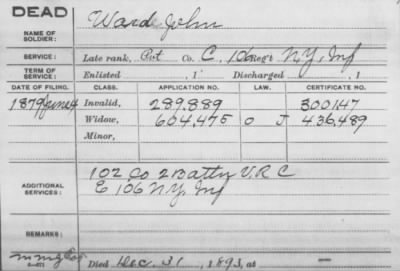 DEAD
NAME OF SOLDIER: Ward, John
SERVICE: Late rank, Pvt Co. C, 106 Reg't N.Y. Inf
TERM OF SERVICE: Enlisted , 1 Discharged , 1
DATE OF FILING. CLASS. APPLICATION NO. LAW. CERTIFICATE NO.
1879 June 4 Invalid, 289.889 300147
Widow, 604,475 O J 436,489
Minor,
ADDITIONAL SERVICES: 102 Co 2 Batt'n V.R.C
E 106 N.Y. Inf
REMARKS:
Died Dec. 31, 1893, at —